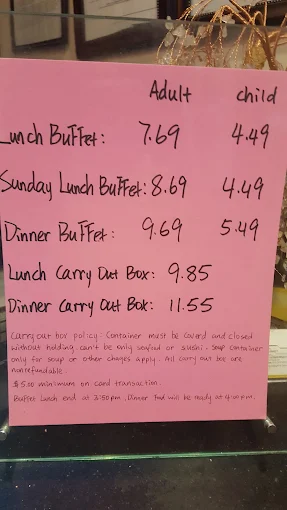 Adult child
Lunch Buffet: 7.69 4.49
Sunday Lunch Buffet: 8.69 4.49
Dinner Buffet: 9.69 5.49
Lunch Carry Out Box: 9.85
Dinner Carry Out Box: 11.55
Carry out box policy. Container must be coverd and closed
without holding. can't be only seafood or sushi. Soup container
only for soup or other chages apply. All carry out box are
nonrefundable.
$5.00 minimum on card transaction.
Buffet Lunch end at 3:50pm. Dinner food will be ready at 4:00pm.